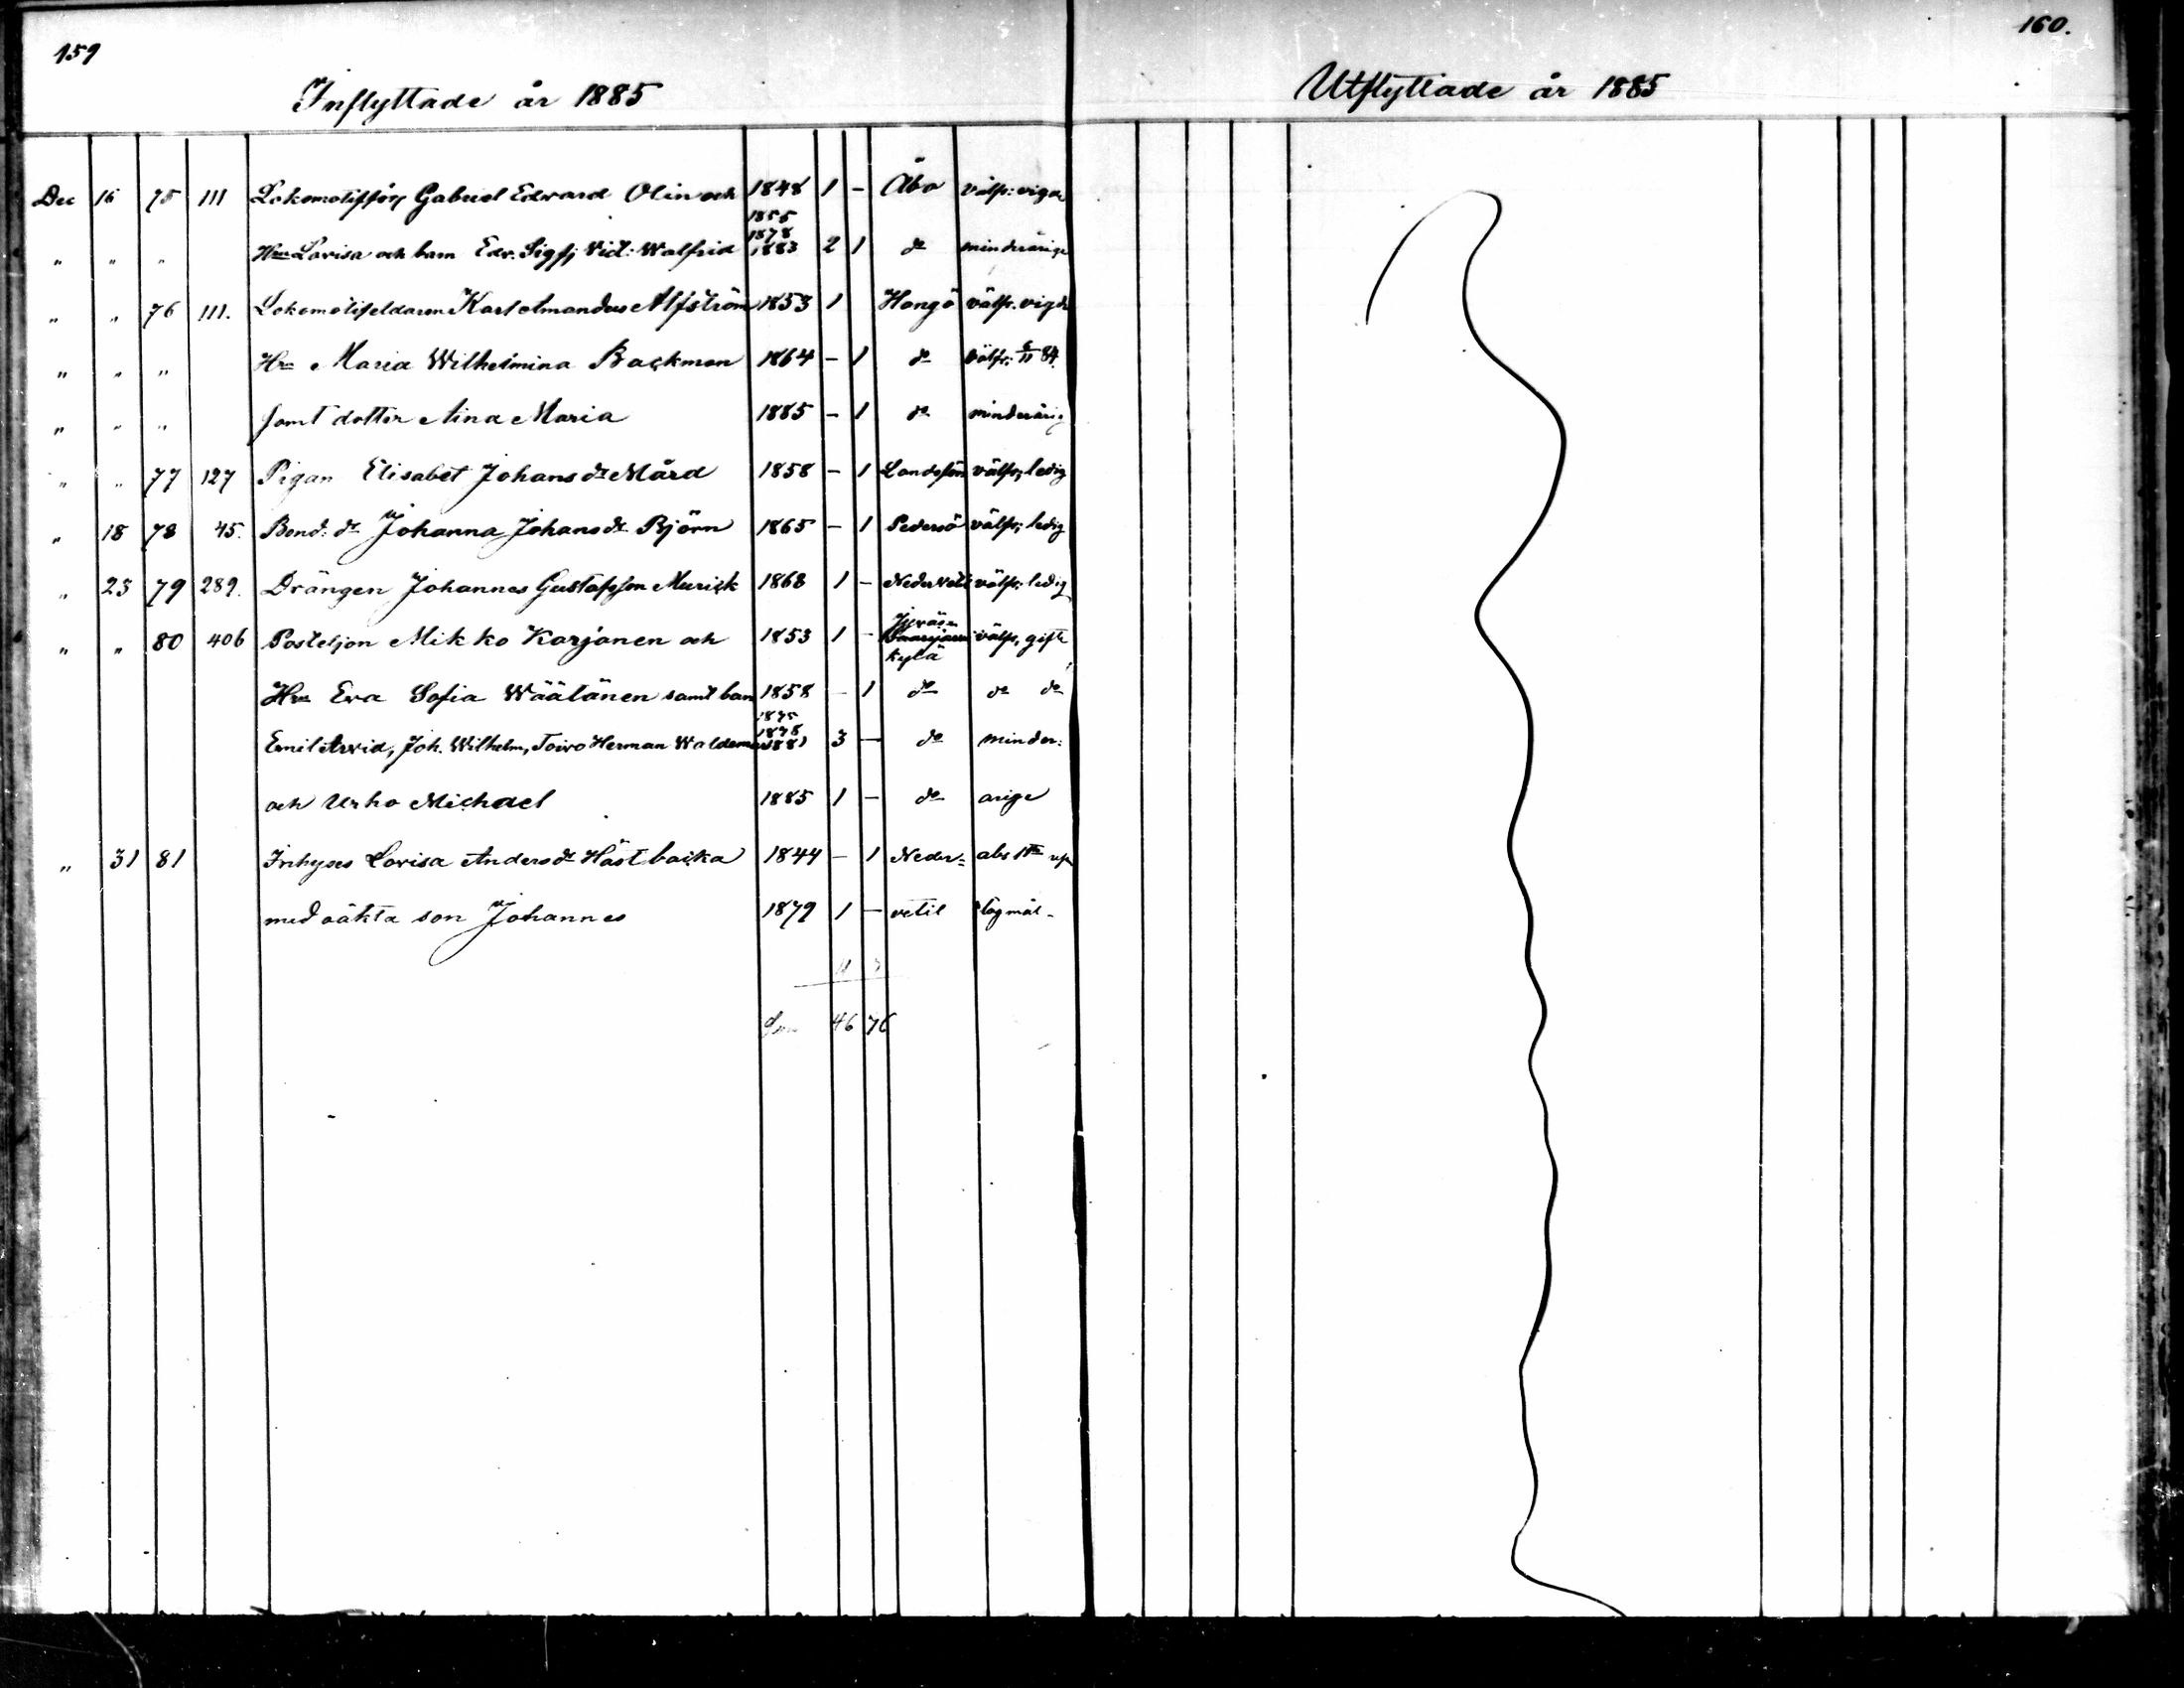 159
Inflyttade år 1885
Dec 16 75 111 Lokomotifför Gabriel Edvard Olin och 1848 1 – Åbo välfr: vigde
1855
1878
" " " Hru Lovisa och barn Edv. Sigfr Vid: Walfrid 1883 2 1 do minderårige
" " 76 111. Lokomotifeldaren Karl Amandus Alfström 1853 1 Hangö välfr. vigde
" " " Hru Maria Wilhelmina Backman 1864 – 1 do välfr: 84.
" " " samt dotter Aina Maria 1885 – 1 do minderårig
" " 77 127 Pigan Elisabet Johansdr Mård 1858 – 1 välfr; ledig
" 18 78 45. Bond: dr Johanna Johansdr Björn 1865 – 1 Pedersö välfr; ledig
" 23 79 289. Drängen Johannes Gustafsson Murick 1868 1 – Nedervetil välfr; ledig
" " 80 406 Posteljon Mikko Karjanen och 1853 1 – kylä välfr, gifte
Hru Eva Sofia Wäätänen samt barn 1858 – 1 do do do
1875
1878
Emil Arvid, Joh. Wilhelm, Toivo Herman Waldemar 1881 3 — do minder:
och Urho Michael 1885 1 – do årige
" 31 81 Inhyses Lovisa Andersdr Hästbacka 1844 – 1 Neder= abs
med oäkta son Johannes 1879 1 — vetil lägmål
46 76
160.
Utflyttade år 1885